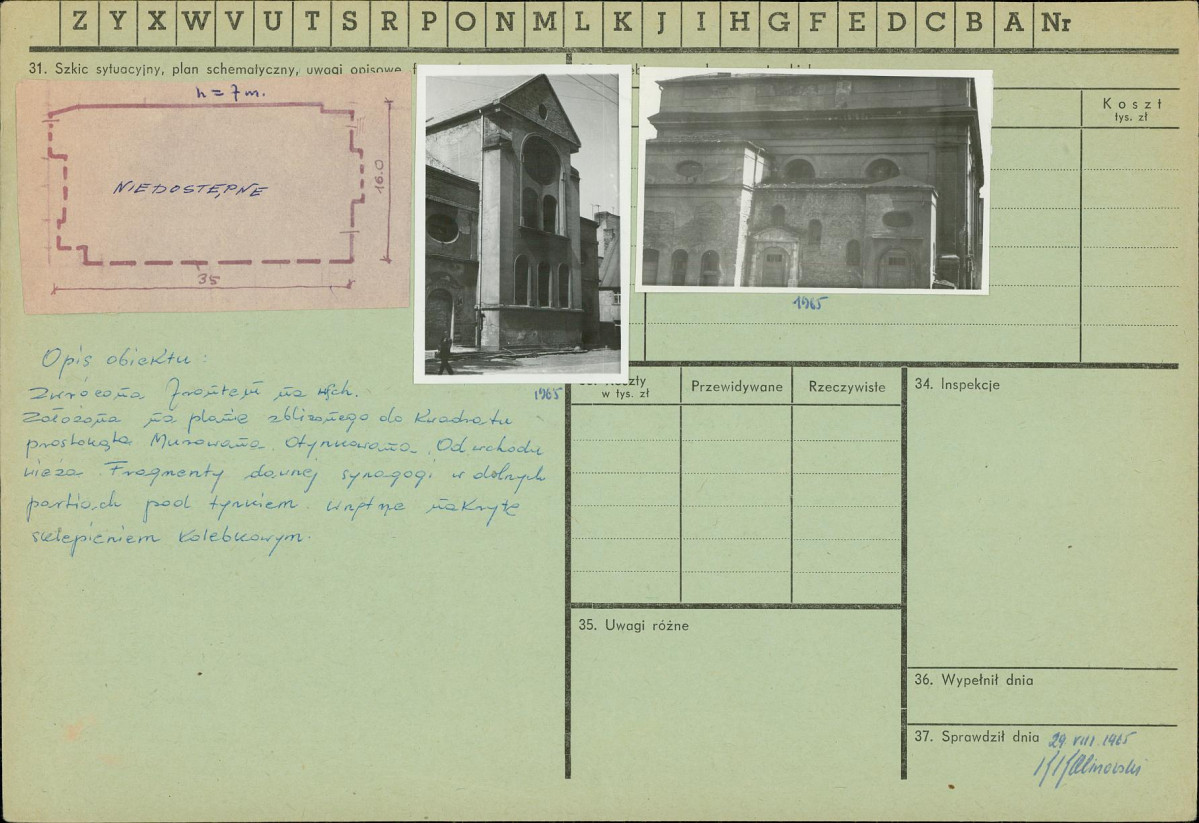 Z Y X W V U T S R P O N M L K J I H G F E D C B A Nr
31. Szkic sytuacyjny, plan schematyczny, uwagi opisowe,
h = 7 m.
NIEDOSTĘPNE
16.0
35
1965
1965
Koszt
tys. zł
Opis obiektu:
Zwrócona frontem na wsch.
Założona na planie zbliżonego do kwadratu
prostokąta. Murowana. Otynkowana. Od wschodu
wieża. Fragmenty dawnej synagogi w dolnych
partiach pod tynkiem. Wnętrze nakryte
sklepieniem kolebkowym.
Koszty
w tys. zł
Przewidywane
Rzeczywiste
34. Inspekcje
35. Uwagi różne
36. Wypełnił dnia
37. Sprawdził dnia 29. VIII. 1965
Kalinowski